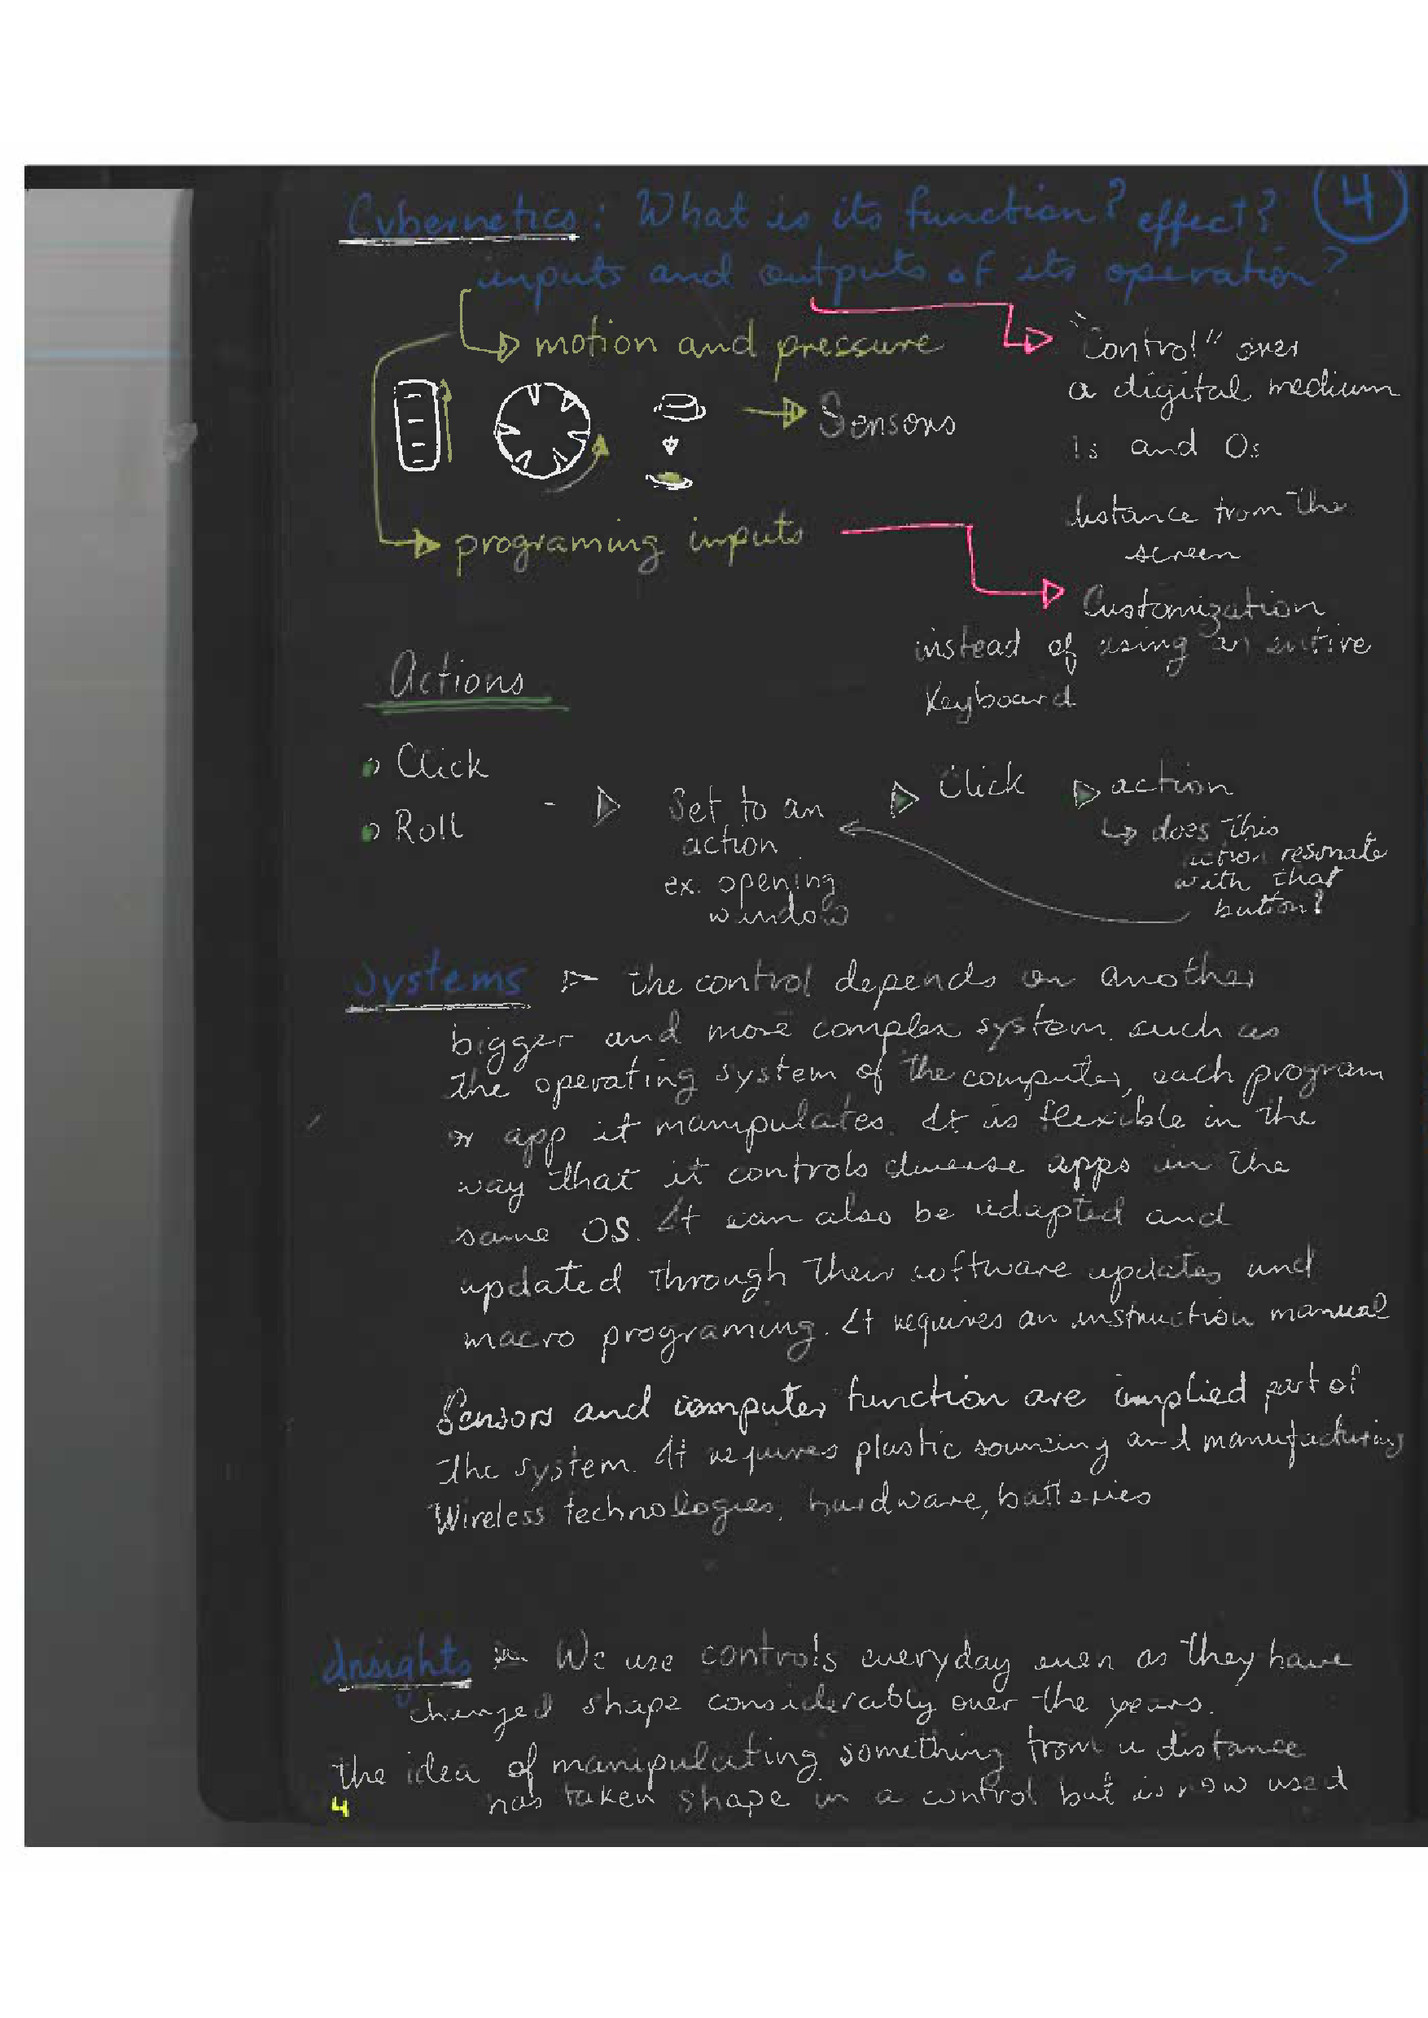 Cybernetics: What is its function? effect? 4
inputs and outputs of its operation?
motion and pressure
"Control" over
a digital medium
Sensors
1s and 0s
distance from the
screen
programing inputs
Customization
instead of using an entire
Keyboard
Actions
Click
Roll
- Set to an
action
ex. opening
window
Click
action
does this
action resonate
with that
button?
Systems the control depends on another
bigger and more complex system. such as
the operating system of the computer, each program
or app it manipulates. It is flexible in the
way that it controls diverse apps in the
same OS. It can also be adapted and
updated through their software updates and
macro programing. It requires an instruction manual
Sensors and computer function are implied part of
the system. It requires plastic sourcing and manufacturing
Wireless technologies, hardware, batteries
Insights We use controls everyday even as they have
changed shape considerably over the years.
the idea of manipulating something from a distance
has taken shape in a control but is now used
4